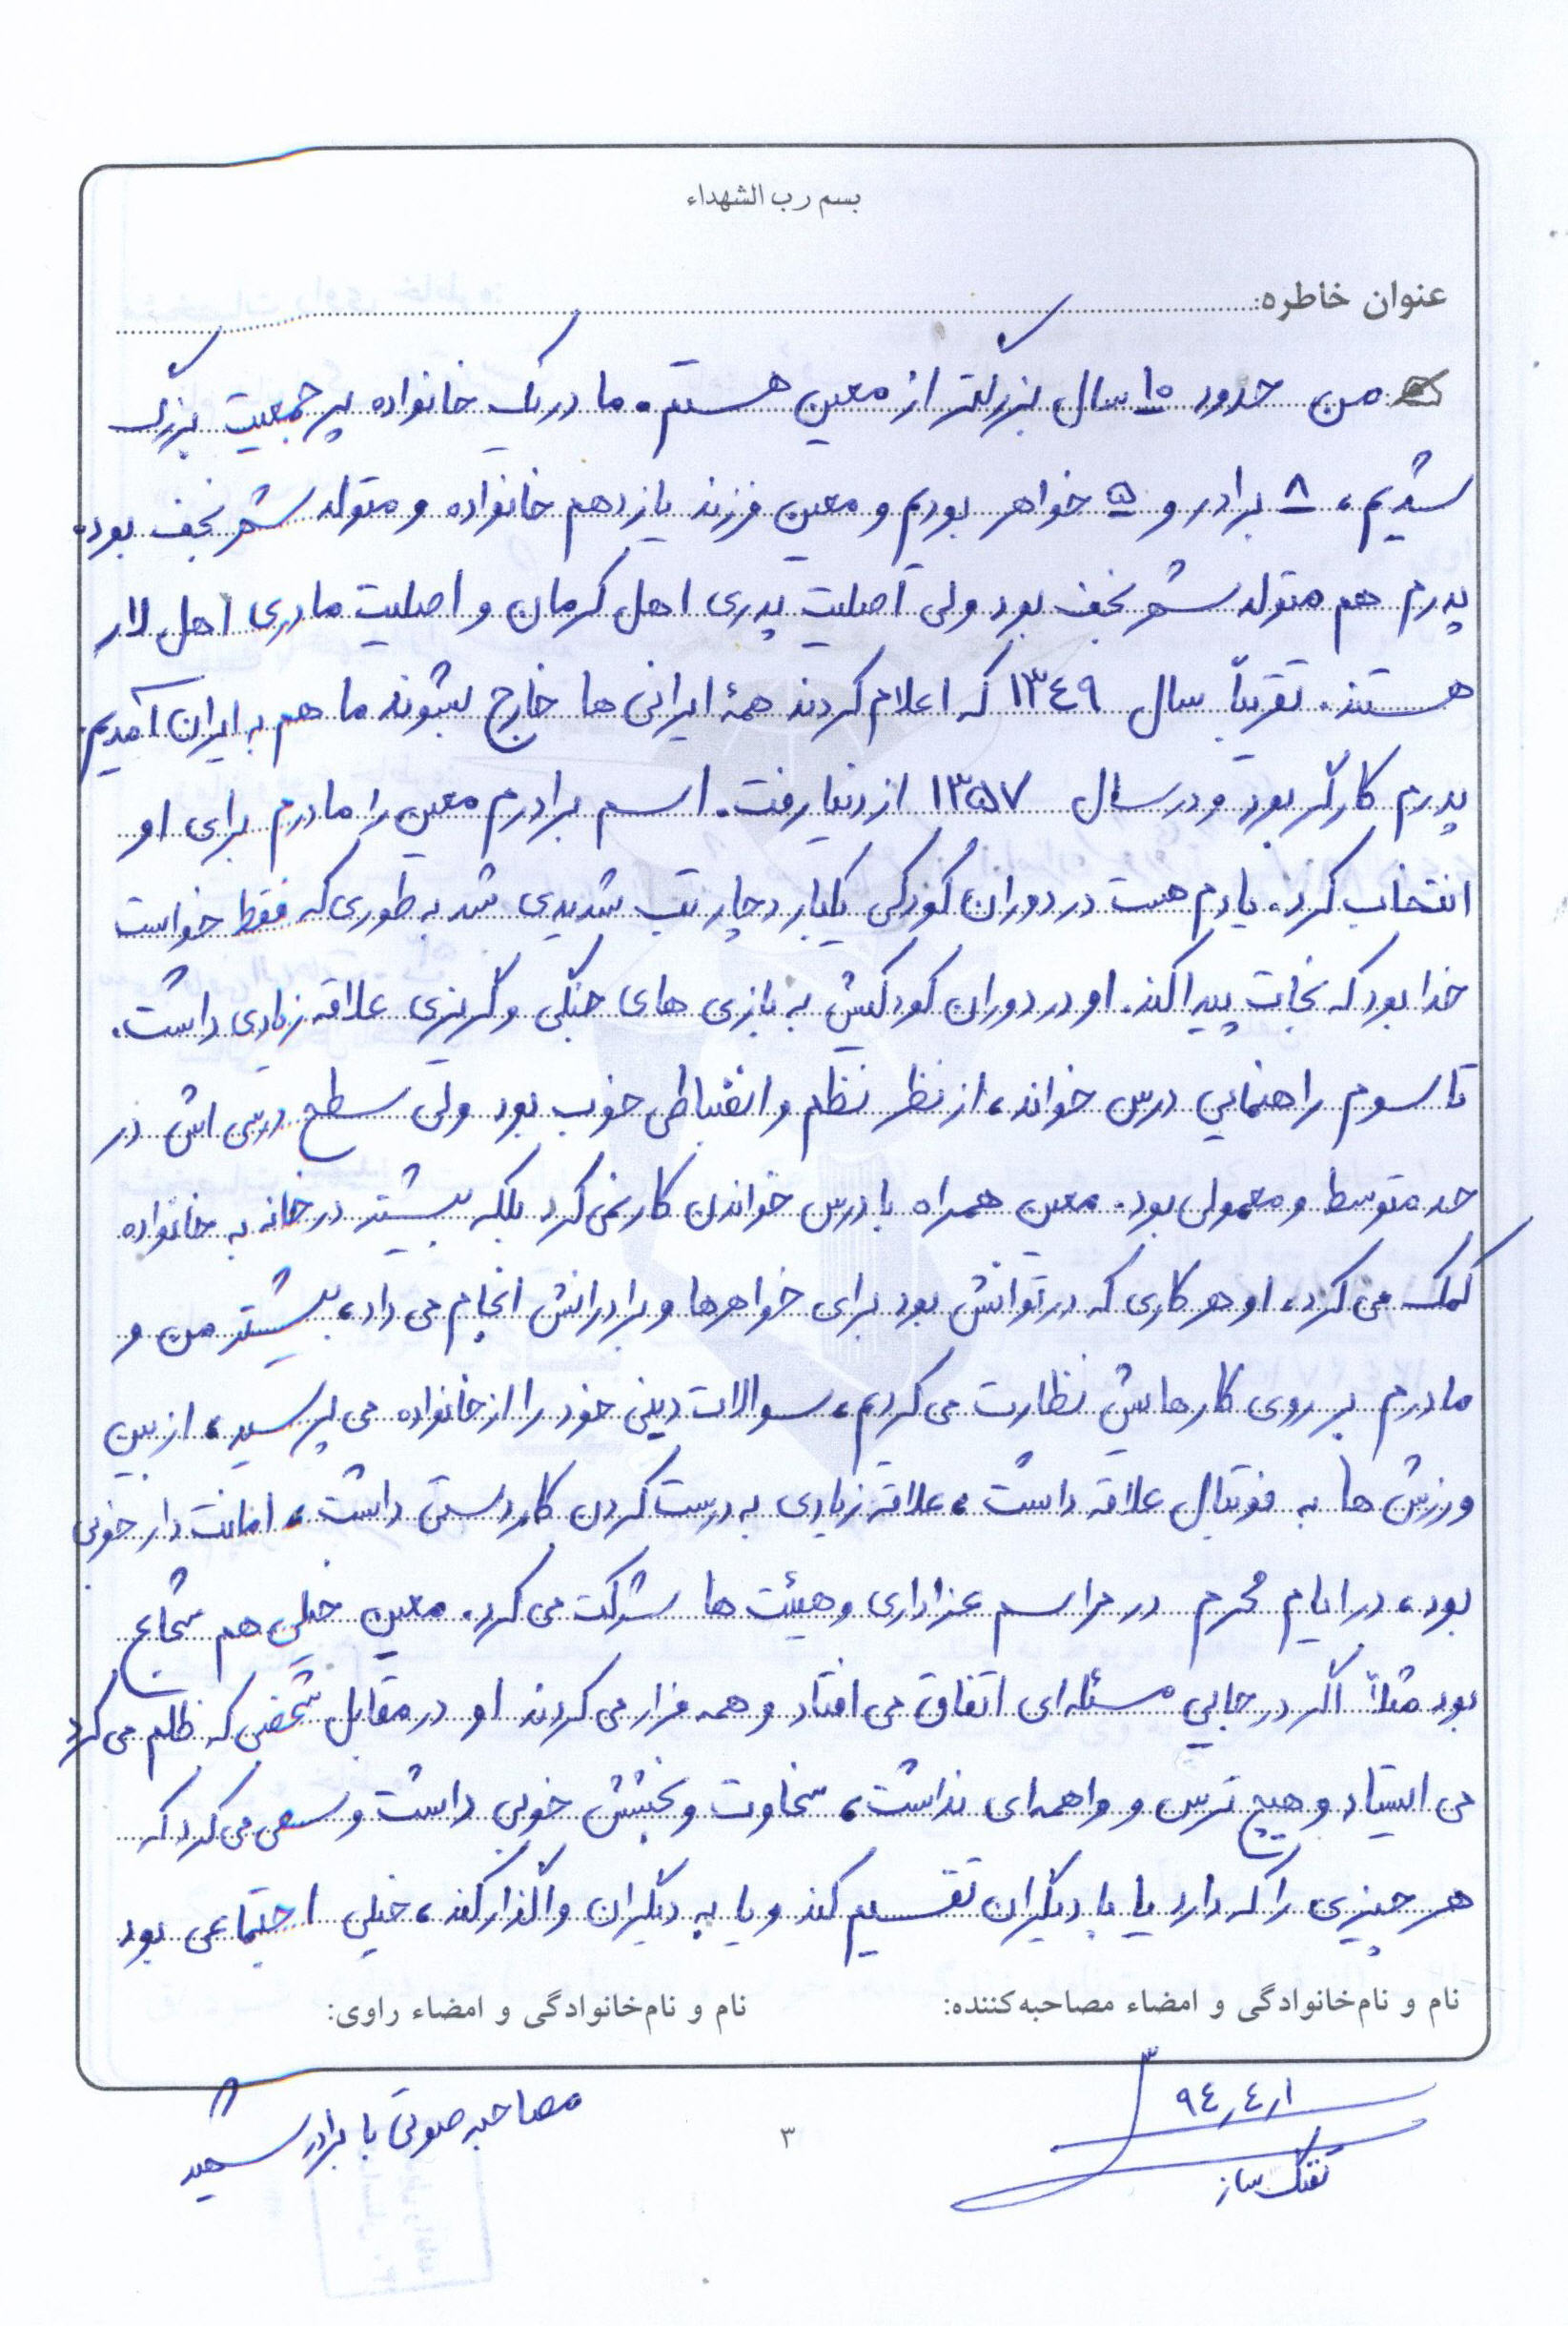 بسم رب الشهداء
عنوان خاطره:
من حدود ۱۰ سال بزرگتر از معین هستم. ما در یک خانواده پر جمعیت بزرگ
شدیم، ۸ برادر و ۵ خواهر بودیم و معین فرزند یازدهم خانواده و متولد شهر نجف بوده
پدرم هم متولد شهر نجف بود ولی اصلیت پدری اهل کرمان و اصلیت مادری اهل لار
هستند. تقریباً سال ۱۳٤۹ که اعلام کردند همهٔ ایرانی ها خارج بشوند ما هم به ایران آمدیم.
پدرم کارگر بود و در سال ۱۳۵۷ از دنیا رفت. اسم برادرم معین را مادرم برای او
انتخاب کرد. یادم هست در دوران کودکی یکبار دچار تب شدیدی شد به طوری که فقط خواست
خدا بود که نجات پیدا کند. او در دوران کودکیش به بازی های جنگی و گریزی علاقه زیادی داشت.
تا سوم راهنمایی درس خواند، از نظر نظم و انضباطی خوب بود ولی سطح درسی اش در
حد متوسط و معمولی بود. معین همراه با درس خواندن کار نمی کرد بلکه بیشتر در خانه به خانواده
کمک می کرد، او هر کاری که در توانش بود برای خواهرها و برادرانش انجام می داد، بیشتر من و
مادرم بر روی کارهایش نظارت می کردیم، سوالات دینی خود را از خانواده می پرسید، از بین
ورزش ها به فوتبال علاقه داشت، علاقه زیادی به درست کردن کاردستی داشت، امانت دار خوبی
بود، در ایام محرم در مراسم عزاداری و هیئت ها شرکت می کرد. معین خیلی هم شجاع
بود مثلاً اگر در جایی مسئله ای اتفاق می افتاد و همه فرار می کردند او در مقابل شخصی که ظلم می کرد
می ایستاد و هیچ ترس و واهمه ای نداشت، سخاوت و بخشش خوبی داشت و سعی می کرد که
هر چیزی را که دارد یا با دیگران تقسیم کند و یا به دیگران واگذار کند، خیلی اجتماعی بود
نام و نام‌خانوادگی و امضاء مصاحبه‌کننده: نام و نام‌خانوادگی و امضاء راوی:
۹٤٫٤٫۱ مصاحبه صوتی با برادر شهید
تفنگ ساز
۳